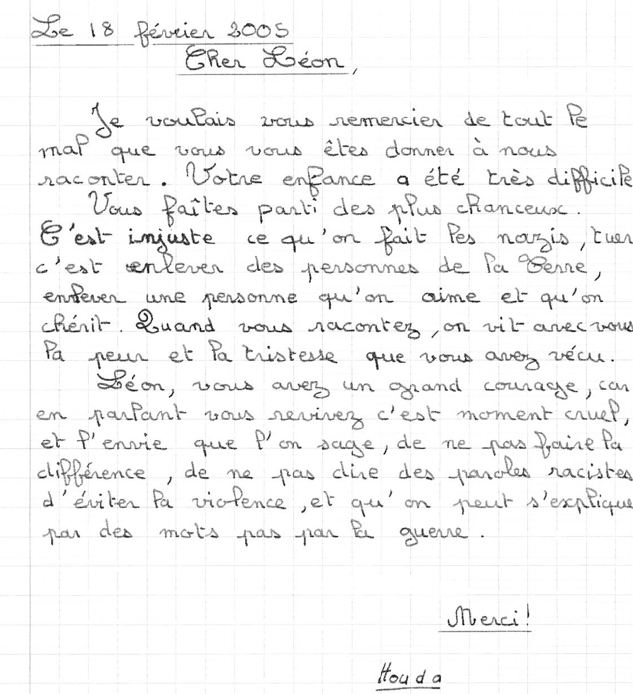 Le 18 février 2005
Cher Léon,
Je voulais vous remercier de tout le
mal que vous vous êtes donner à nous
raconter. Votre enfance a été très difficile
Vous faîtes parti des plus chanceux.
C'est injuste ce qu'on fait les nazis, tuer
c'est enlever des personnes de la Terre,
enlever une personne qu'on aime et qu'on
chérit. Quand vous racontez, on vit avec vous
la peur et la tristesse que vous avez vécu.
Léon, vous avez un grand courage, car
en parlant vous revivez c'est moment cruel,
et l'envie que l'on sage, de ne pas faire la
différence, de ne pas dire des paroles racistes
d'éviter la violence, et qu'on peut s'explique
par des mots pas par la guerre.
Merci!
Houda